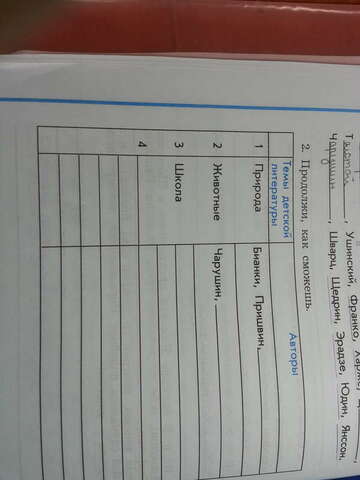 Толстой, Ушинский, Франко,
Чарушин, Шварц, Щедрин, Эрадзе, Юдин, Янссон.
2. Продолжи, как сможешь.
Темы детской литературы Авторы
1 Природа Бианки, Пришвин,
2 Животные Чарушин,
3 Школа
4